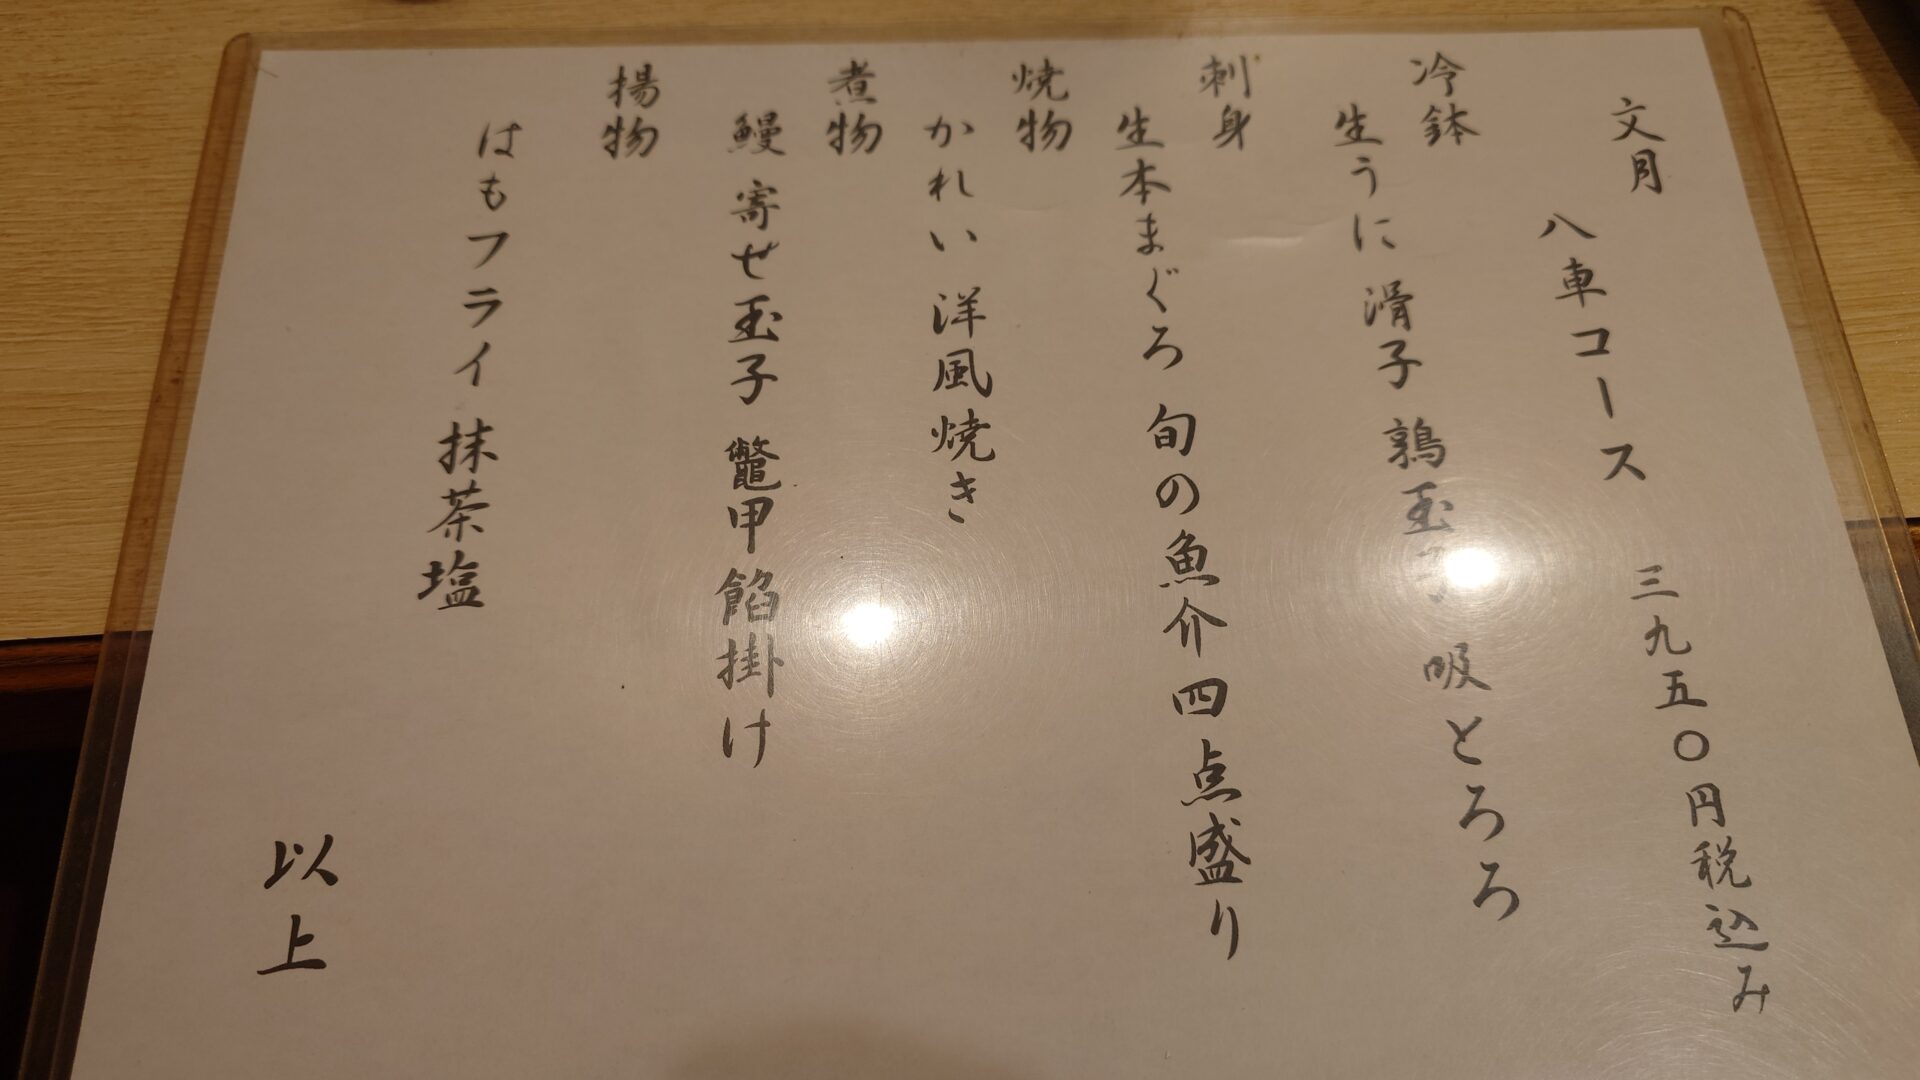 文月
八車コース 三九五〇円税込み
冷鉢
生うに 滑子 鶉玉子 吸とろろ
刺身
生本まぐろ 旬の魚介四点盛り
焼物
かれい 洋風焼き
煮物
鰻 寄せ玉子 鼈甲餡掛け
揚物
はもフライ 抹茶塩
以上